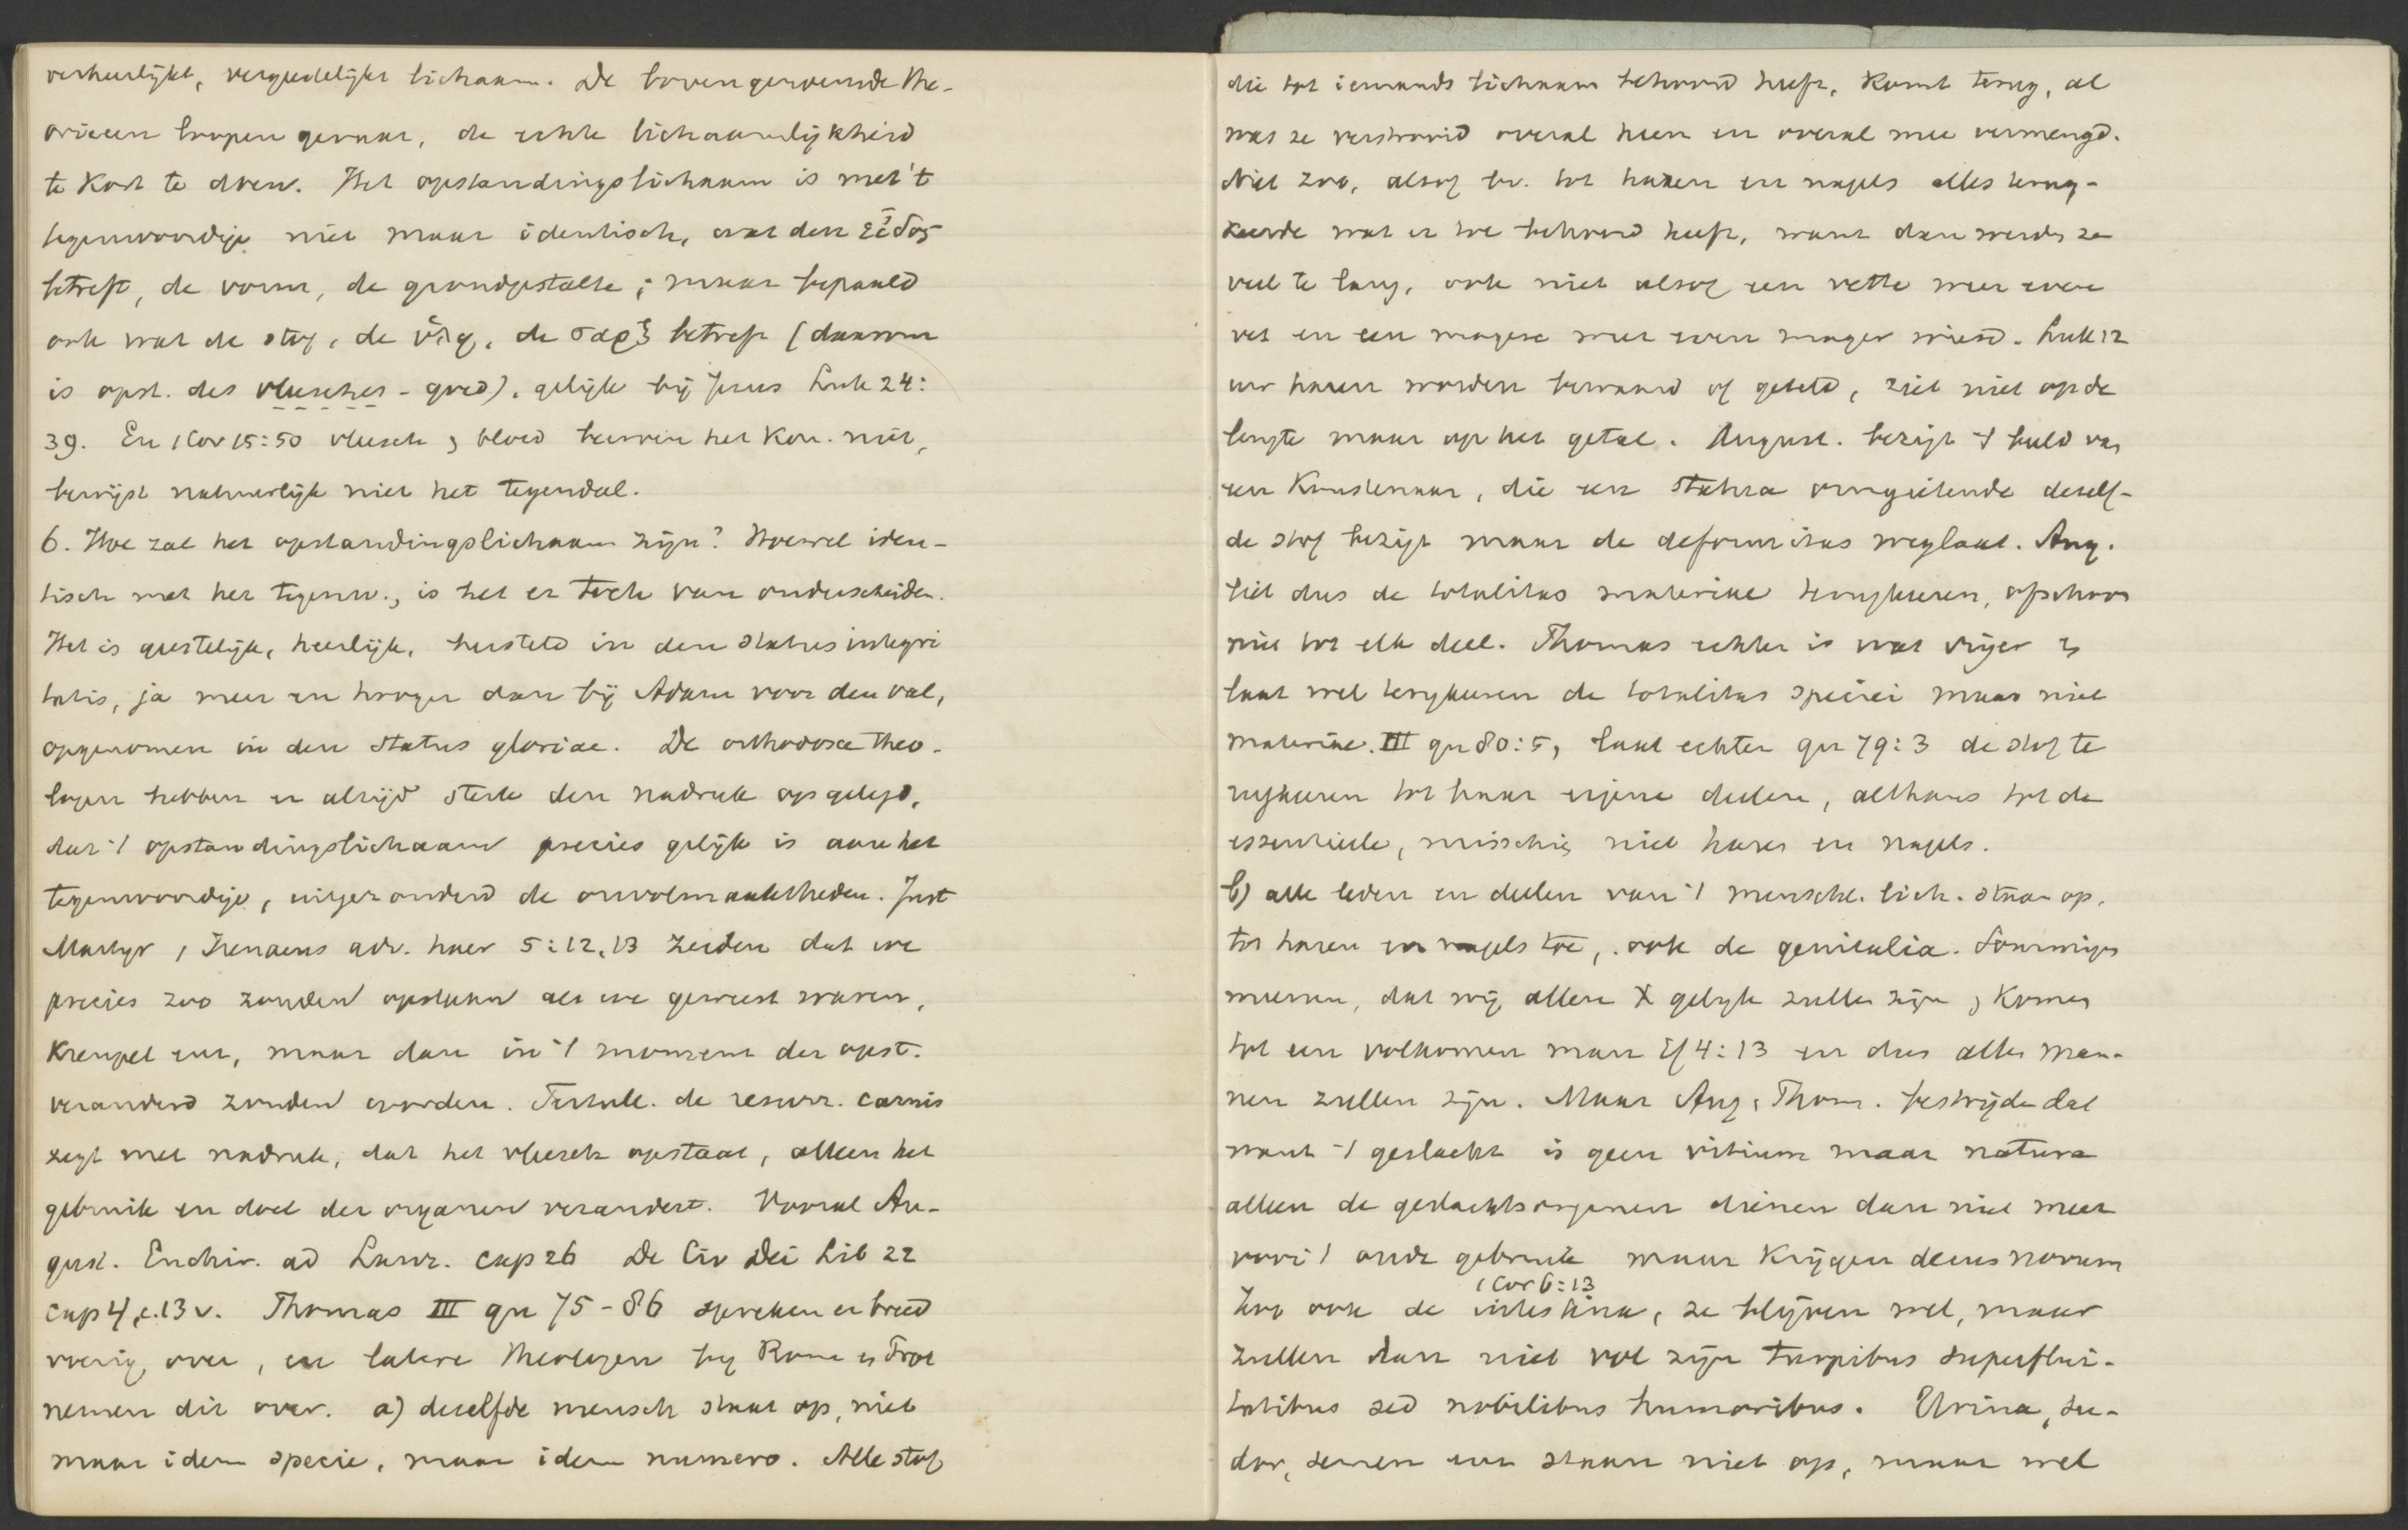 verheerlijkt, vergeestelijkt lichaam. De bovengenoemde the-
orieen loopen gevaar, de echte lichaamelijkheid
te kort te doen. Het opstandingslichaam is met 't
tegenwoordige niet maar identisch, wat den εἶδος
betreft, de vorm, de grondgestalte; maar bepaald
ook wat de stof, de ὕλη, de σαρξ betreft (daarom
is opst. des vleesches - goed), gelijk bij Jezus Luk 24:
39. En 1 Cor 15:50 vleesch en bloed beerven het Kon. niet,
bewijst natuurlijk niet het tegendeel.
6. Hoe zal het opstandingslichaam zijn? Hoewel iden-
tisch met het tegenw., is het er toch van onderscheiden.
Het is geestelijk, heerlijk, hersteld in den status integri
tatis, ja meer en hooger dan bij Adam voor den val,
opgenomen in den status gloriae. De orthodoxe theo-
logen hebben er altijd sterk den nadruk op gelegd,
dat 't opstandingslichaam precies gelijk is aan het
tegenwoordige, uitgezonderd de onvolmaaktheden. Just
Martyr, Irenaeus adv. haer 5:12,13 zeiden dat we
precies zoo zouden opstaan als we geweest waren,
kreupel enz, maar dan in 't moment der opst.
veranderd zouden worden. Tertull. de resurr. carnis
zegt met nadruk, dat het vleesch opstaat, alleen het
gebruik en doel der organen verandert. Vooral Au-
gust. Enchir. ad Laur. cap 26 De Civ Dei Lib 22
cap 4, c. 13 v. Thomas III qu 75-86 spreken er breed
voerig over, en latere theologen bij Rome en Prot
nemen dit over. a) dezelfde mensch staat op, niet
maar idem specie, maar idem numero. Alle stof
die tot iemands lichaam behoord heeft, komt terug, al
was ze verstrooid overal heen en overal mee vermengd.
Niet zoo, alsof bv. tot haren en nagels alles terug-
keerde wat er toe behoord heeft, want dan werden ze
veel te lang, ook niet alsof een vette weer even
vet en een magere weer even mager wierd. Luk 12
uw haren worden bewaard of geteld, ziet niet op de
lengte maar op het getal. August. bezigt 't beeld van
een Kunstenaar, die een statua omgietende dezelf-
de stof bezigt maar de deformitas weglaat. Aug.
liet dus de totalitas materiae terugkeeren, ofschoon
niet tot elk deel. Thomas echter is wat vrijer en
laat wel terugkeeren de totalitas speciei maar niet
materiae. III qu 80:5, laat echter qu 79:3 de stof te
rugkeeren tot haar eigene deelen, althans tot de
essentieele, misschien niet haren en nagels.
b) alle leden en deelen van 't menschl. lich. staan op,
tot haren en nagels toe, ook de genitalia. Sommigen
meenen, dat wij allen X gelijk zullen zijn en komen
tot een volkomen man Ef 4:13 en dus allen man-
nen zullen zijn. Maar Aug, Thom. bestrijden dat
want 't geslacht is geen vitium maar natura
alleen de geslachtsorganen dienen dan niet meer
voor 't oude gebruik maar krijgen decus novum
1 Cor 6:13
Zoo ook de intestina, ze blijven wel, maar
zullen dan niet vol zijn turpibus superflui-
tatibus sed nobilibus humoribus. Urina, su-
dor, semen enz staan niet op, maar wel